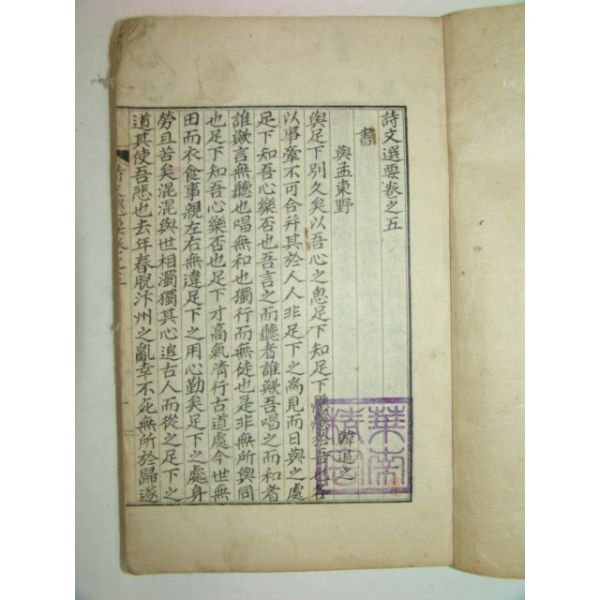 詩文選要卷之五
書
與孟東野 韓退之
與足下別久矣以吾心之思足下知足下懸懸於吾也各
以事牽不可合并其於人人非足下之爲見而日與之處
足下知吾心樂否也吾言之而聽者誰歟吾唱之而和者
誰歟言無聽也唱無和也獨行而無徒也是非無所與同
也足下知吾心樂否也足下才高氣淸行古道處今世無
田而衣食事親左右無違足下之用心勤矣足下之處身
勞且苦矣混混與世相濁獨其心追古人而從之足下之
道其使吾悲也去年春脫汴州之亂幸不死無所於歸遂
華南